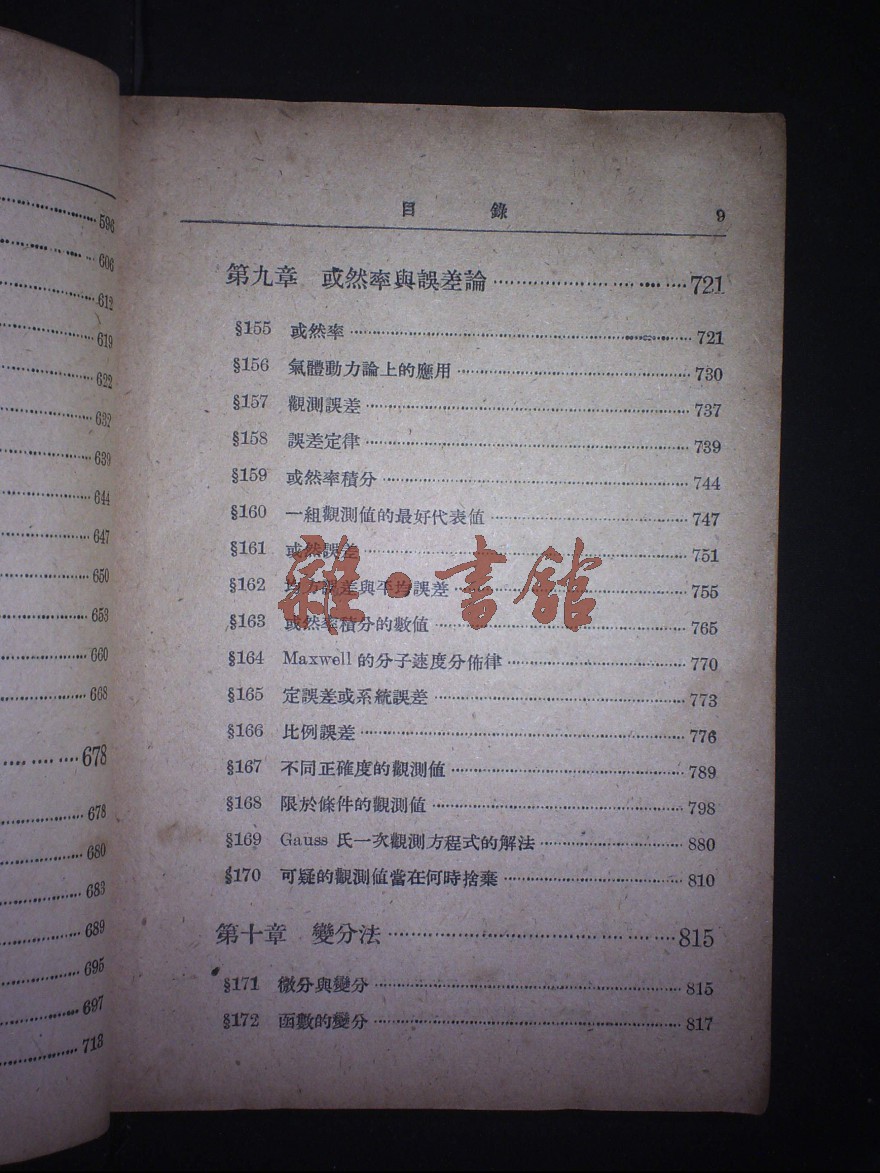 596
606
612
619
622
632
639
644
647
650
653
660
668
678
678
680
683
689
695
697
713
目 錄 9
第九章 或然率與誤差論 721
§155 或然率 721
§156 氣體動力論上的應用 730
§157 觀測誤差 737
§158 誤差定律 739
§159 或然率積分 744
§160 一組觀測值的最好代表值 747
§161 或然誤差 751
§162 均方誤差與平均誤差 755
§163 或然率積分的數值 765
§164 Maxwell 的分子速度分佈律 770
§165 定誤差或系統誤差 773
§166 比例誤差 776
§167 不同正確度的觀測値 789
§168 限於條件的觀測値 798
§169 Gauss 氏一次觀測方程式的解法 880
§170 可疑的觀測値當在何時捨棄 810
第十章 變分法 815
§171 微分與變分 815
§172 函數的變分 817
雜·書館